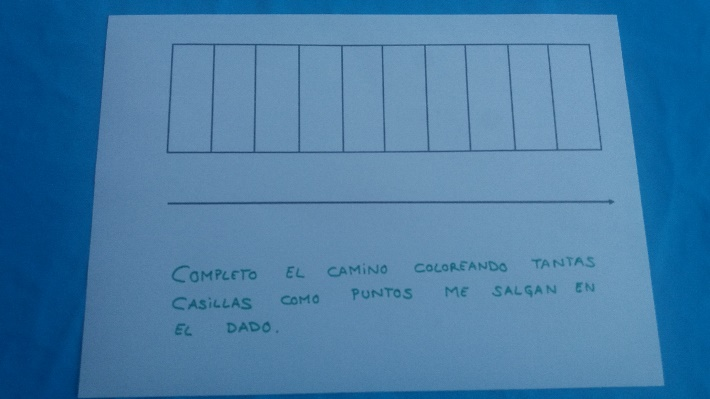 COMPLETO EL CAMINO COLOREANDO TANTAS
CASILLAS COMO PUNTOS ME SALGAN EN
EL DADO.